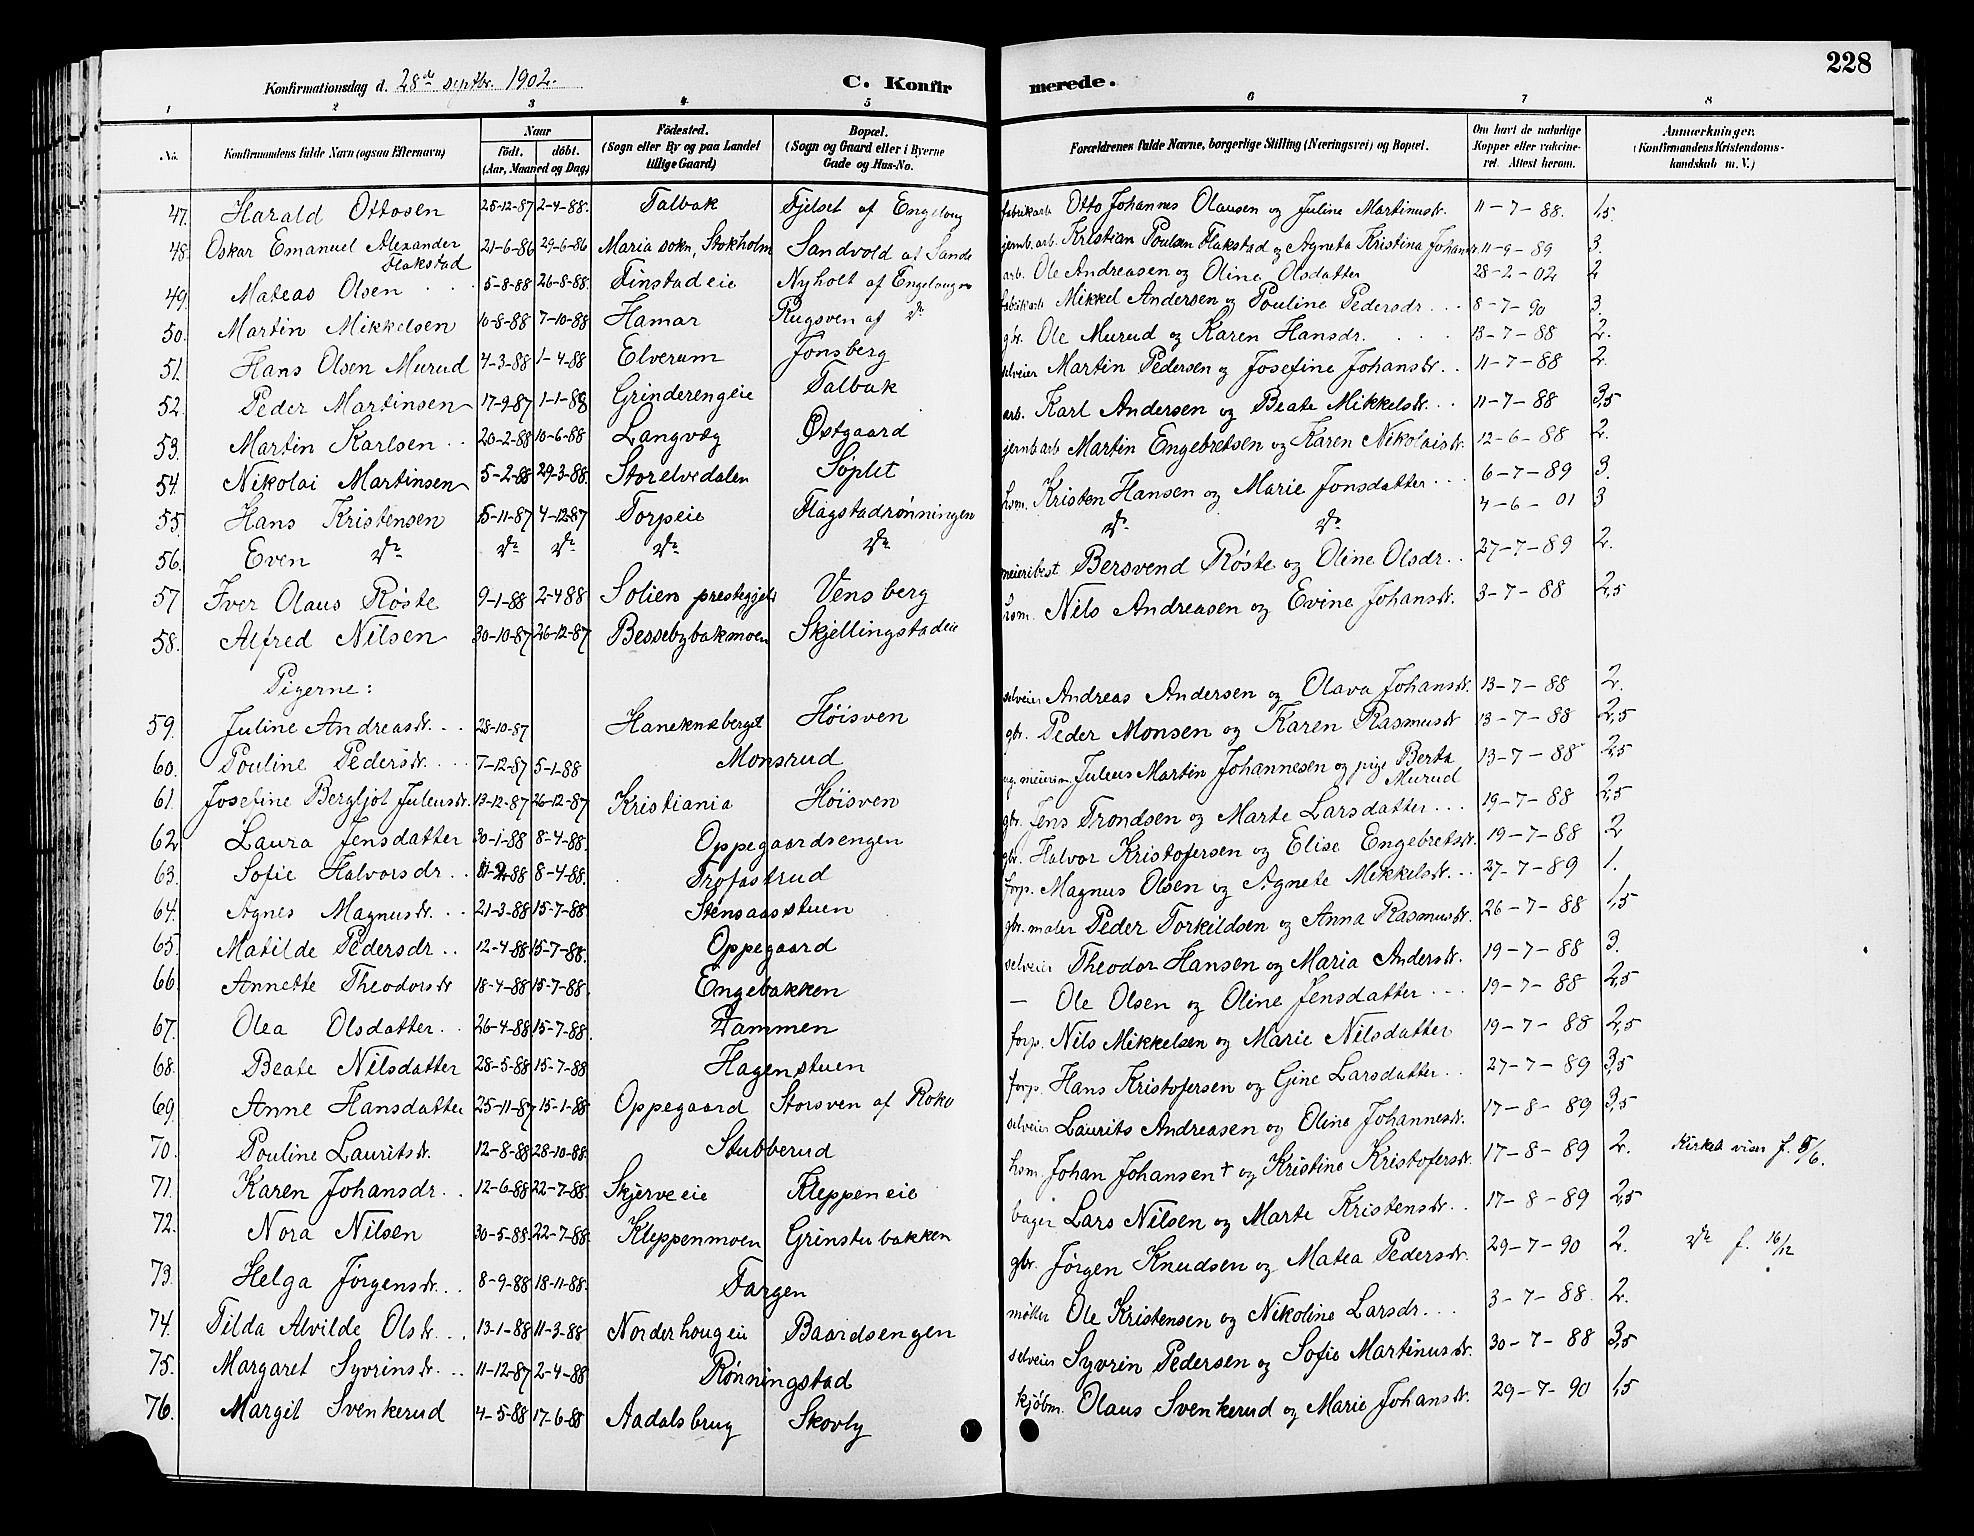 228
Konfirmationsdag d. 28de septbr. 1902.
C. Konfirmerede.
1 2 3 4 5 6 7 8
No. | Konfirmandens fulde Navn (ogsaa Efternavn) | Naar födt. döbt. (Aar, Maaned og Dag) | Födested. (Sogn eller By og paa Landet tillige Gaard) | Bopæl. (Sogn og Gaard eller i Byerne Gade og Hus-No. | Forældrenes fulde Navne, borgerlige Stilling (Næringsvei) og Bopæl. | Om havt de naturlige Kopper eller vakcineret. Attest herom. | Anmærkninger. (Konfirmandens Kristendomskundskab m. V.)
47. Harald Ottosen 25-12-87 2-4-88. Talbak Fjelset af Engelaug fabrikarb Otto Johannes Olausen og Juline Martinusdr. 11-7-88. 1,5
48. Oskar Emanuel Alexander Flakstad 21-6-86 29-6-86 Maria sokn, Stokholm Sandvold af Sande jernb. arb. Kristian Poulsen Flakstad og Agneta Kristina Johans 11-9-89 3.
49. Mateas Olsen 5-8-88 26-8-88. Finstadeie Nyholt af Engelaug arb. Ole Andreasen og Oline Olsdatter 28-2-02 2
50. Martin Mikkelsen 10-8-88 7-10-88 Hamar Rugsven af do fabrikarb Mikkel Andersen og Pouline Pedersdr. 8-7-90 3.
51. Hans Olsen Murud 4-3-88 1-4-88 Elverum Jonsberg gbr. Ole Murud og Karen Hansdr. 13-7-88 2.
52. Peder Martinsen 17-9-87 1-1-88 Grinderengeie Talbak selveier Martin Pedersen og Josefine Johansdr. 11-7-88 2.
53. Martin Karlsen 20-2-88 10-6-88 Langvæg Østgaard arb. Karl Andersen og Beate Mikkelsdr. 11-7-88 3,5
54. Nikolai Martinsen 5-2-88 29-3-88. Storelvedalen Søplet jernb arb Martin Engebretsen og Karen Nikolaisdr. 12-6-88 2.
55. Hans Kristensen 15-11-87 4-12-87 Torpeie Flagstadrønningen hsm. Kristen Hansen og Marie Jonsdatter 6-7-89 3.
56. Even do do do do do do do 4-6-01 3
57 Iver Olaus Røste 9-1-88 2-4 88 Solien prestegjeld Vensberg meieribest Bersvend Røste og Oline Olsdr. 27-7-89 2.
58. Alfred Nilsen 30-10-87 26-12-87 Bessebybakmoen Skjellingstadeie hsm. Nils Andreasen og Evine Johansdr. 3-7-88 2,5
Pigerne:
59. Juline Andreasdr. 28-10-87 Haneknæberget Høisven selveier Andreas Andersen og Olava Johansdr. 13-7-88 2.
60. Pouline Pedersdr. 7-12-87 5-1-88 Monsrud gbr. Peder Monsen og Karen Rasmusdr 13-7-88 2,5
61. Josefine Bergljot Juleusdr. 13-12-87 26-12-87 Kristiania Høisven Juleus Martin Johannesen og pige Berta Murud 13-7-88 2,5
62 Laura Jensdatter 30-1-88 8-4-88. Oppegaardsengen gbr. Jens Trondsen og Marte Larsdatter 19-7-88 2,5
63. Sofie Halvorsdr. 88 8-4-88. Trofastrud gbr. Halvor Kristofersen og Elise Engebretsdr. 19-7-88 2
64. Agnes Magnusdr. 21-3-88 15-7-88 Stensaasstuen forp. Magnus Olsen og Agnete Mikkelsdr. 27-7-89 1.
65. Matilde Pedersdr 12-4-88 15-7-88. Oppegaard gbr. maler Peder Torkildsen og Anna Rasmusdr. 26-7-88 1,5
66. Annette Theodorsdr 18-4-88 15-7-88. Engebakken selveier Theodor Hansen og Maria Andersdr. 19-7-88 3.
67. Olea Olsdatter. 26-4-88 15-7-88. Dammen — Ole Olsen og Oline Jensdatter 19-7-88 2,5
68. Beate Nilsdatter 28-5-88 15-7-88 Hagenstuen forp. Nils Mikkelsen og Marie Nilsdatter 19-7-88 2,5
69. Anne Hansdatter 25-11-87 15-1-88 Oppegaard Storsven af Roko forp. Hans Kristofersen og Gine Larsdatter 27-7-89 3,5
70. Pouline Lauritsdr. 12-8-88 28-10-88. Stubberud selveier Laurits Andreasen og Oline Johannesdr. 17-8-89 3,5
71. Karen Johansdr. 12-6-88 22-7-88 Skjerveeie Kleppeneie hsm Johan Johansen † og Kristine Kristofersdr. 17-8-89 2. Kirkeb. viser f. 5/6.
72. Nora Nilsen 30-5-88 22-7-88. Kleppenmoen Grinstubakken bager Lars Nilsen og Marte Kristensdr. 17-8-89 2,5
73. Helga Jørgensdr. 8-9-88 18-11-88. Fargen gbr. Jørgen Knudsen og Matea Pedersdr. 29-7-90 2. do f. 16/12
74. Tilda Alvilde Olsdr. 13-1-88 11-3-88 Norderhougeie Baardsengen møller Ole Kristensen og Nikoline Larsdr. 3-7-88. 2.
75. Margaret Syvrinsdr. 11-12-87 2-4-88 Rønningstad selveier Syvrin Pedersen og Sofie Martinusdr. 30-7-88 3,5
76. Margit Svenkerud 4-5-88 17-6-88 Aadalsbrug Skovly kjøbm. Olaus Svenkerud og Marie Johansdr. 29-7-90 1,5